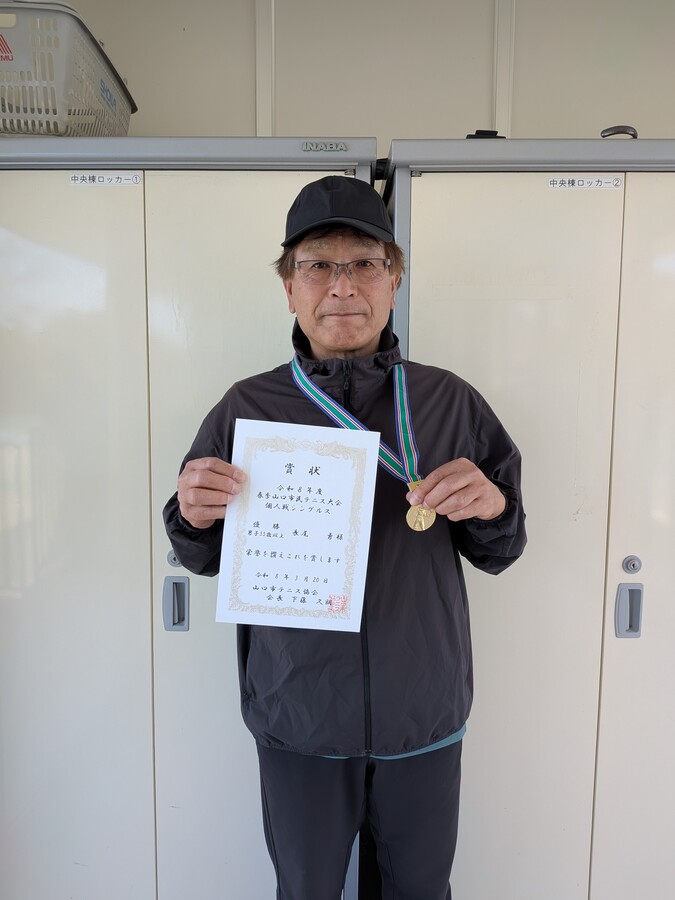 INABA
中央棟ロッカー①
中央棟ロッカー②
賞 状
令和 8 年 度
春季山口市民テニス大会
個人戦シングルス
優 勝
男子55歳以上 長尾 様
栄誉を讃えこれを賞します
令和 8 年 3 月 20 日
山口市テニス協会
会長 下藤